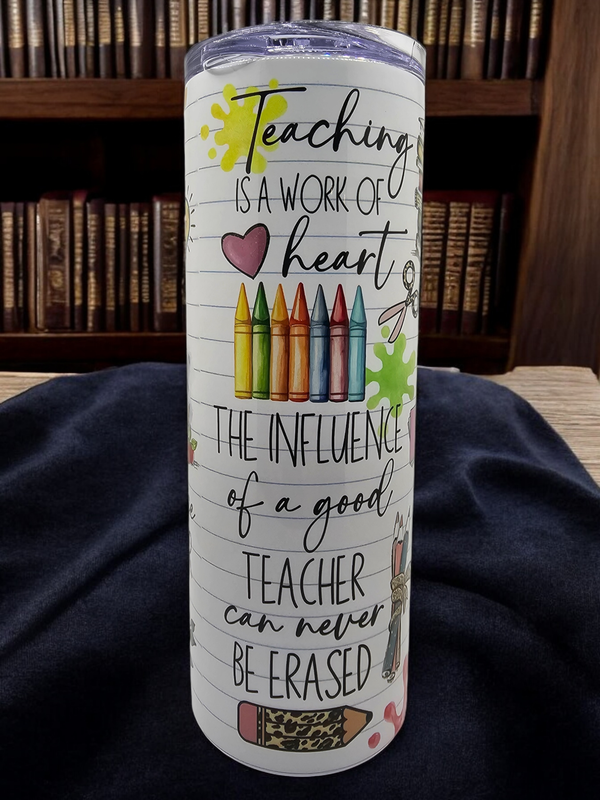 Teaching
IS A WORK OF
heart
THE INFLUENCE
of a good
TEACHER
can never
BE ERASED